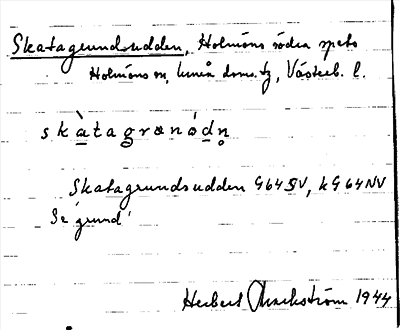 Skatagrundsudden, Holmöns södra spets
Holmöns sn, Umeå doms. tg, Västerb. l.
skàtagrənódn̥
Skatagrundsudden G64SV, kG64NV
Se 'grund'
Herbert Markström 1944